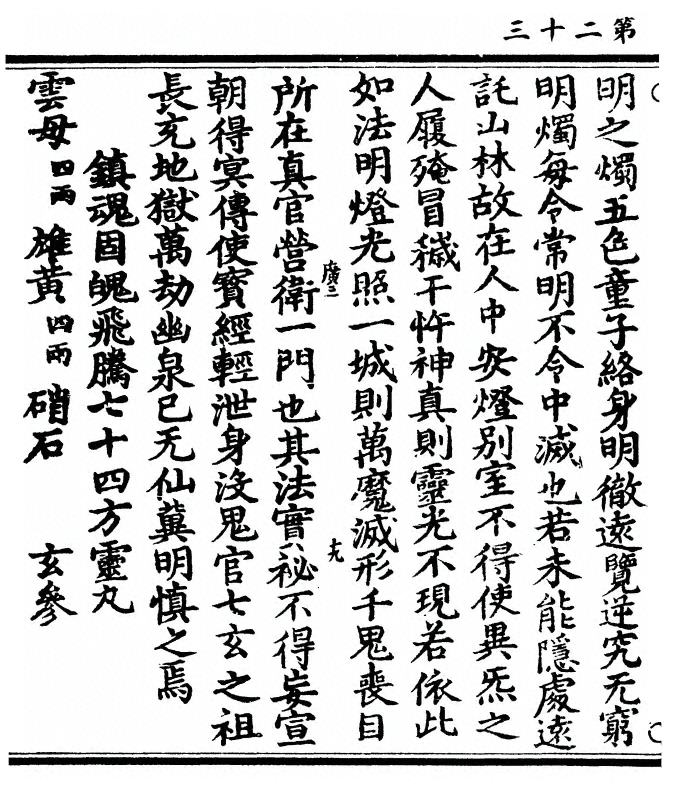 第二十三
明之燭五色童子絡身明徹遠覽逆究无窮
明燭每令常明不令中滅也若未能隱處遠
託山林故在人中安燈别室不得使異炁之
人履殗冒穢干忤神真則靈光不現若依此
如法明燈光照一城則萬魔滅形千鬼喪目
廣三
十九
所在真官營衛一門也其法實祕不得妄宣
朝得㝠傳使寳經輕泄身没鬼官七玄之祖
長充地獄萬劫幽泉已无仙冀明慎之焉
鎮魂固魄飛騰七十四方靈丸
雲母四兩 雄黄四兩 硝石 玄參